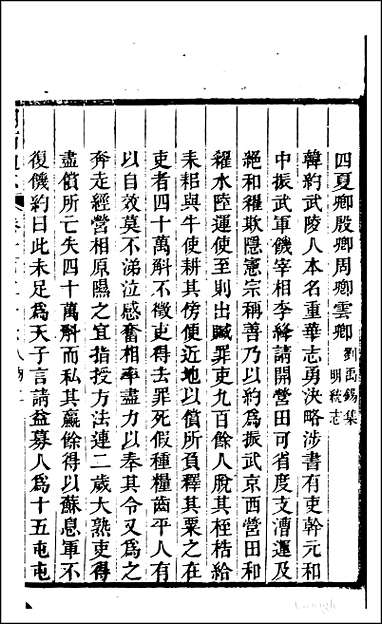 四夏卿殷卿周卿雲卿劉禹錫集明統志
韓約武陵人本名重華志勇決略涉書有吏幹元和
中振武軍饑宰相李絳請開營田可省度支漕運及
絶和糴欺隱憲宗稱善乃以約爲振武京西營田和
糴水陸運使至則出贓罪吏九百餘人脫其桎梏給
耒耜與牛使耕其傍便近地以償所負釋其粟之在
吏者四十萬斛不徵吏得去罪死假種糧齒平人有
以自效莫不涕泣感奮相率盡力以奉其令又爲之
奔走經營相原隰之宜指授方法連二歲大熟吏得
盡償所亡失四十萬斛而私其贏餘得以蘇息軍不
復饑約曰此未足爲天子言請益募人爲十五屯屯